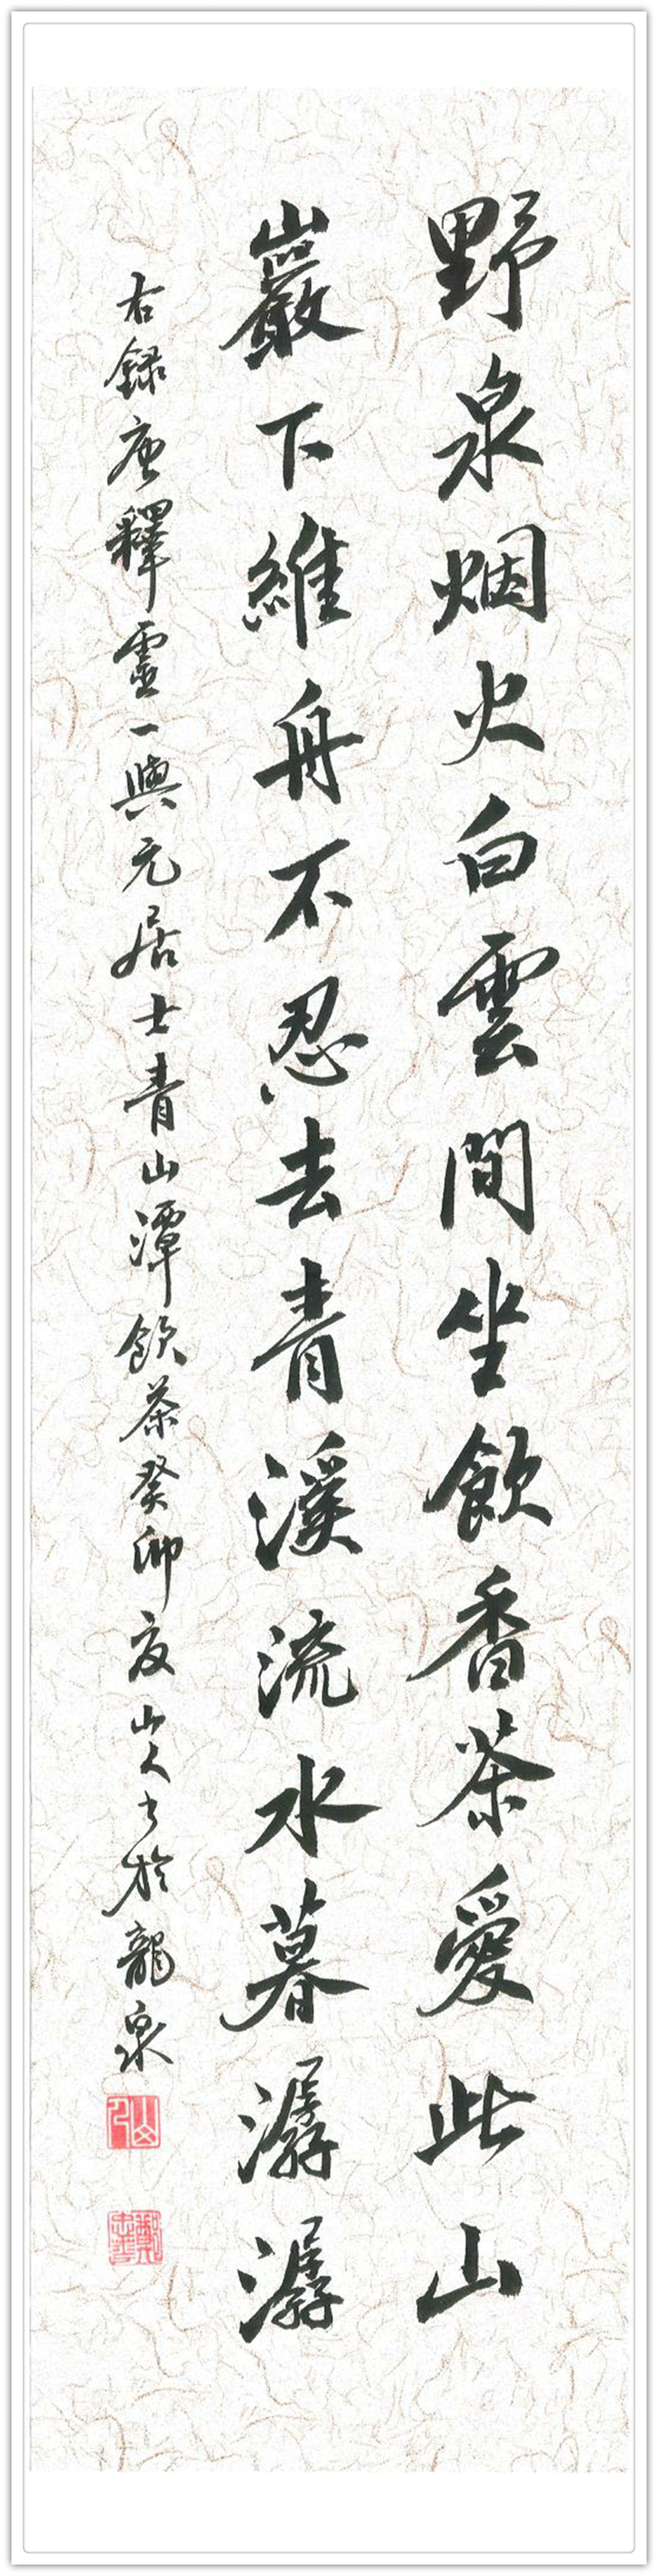 野泉烟火白雲間坐飲香茶愛此山
巖下維舟不忍去青溪流水暮潺潺
右録唐釋靈一與元居士青山潭飲茶癸卯夏山人書於龍泉